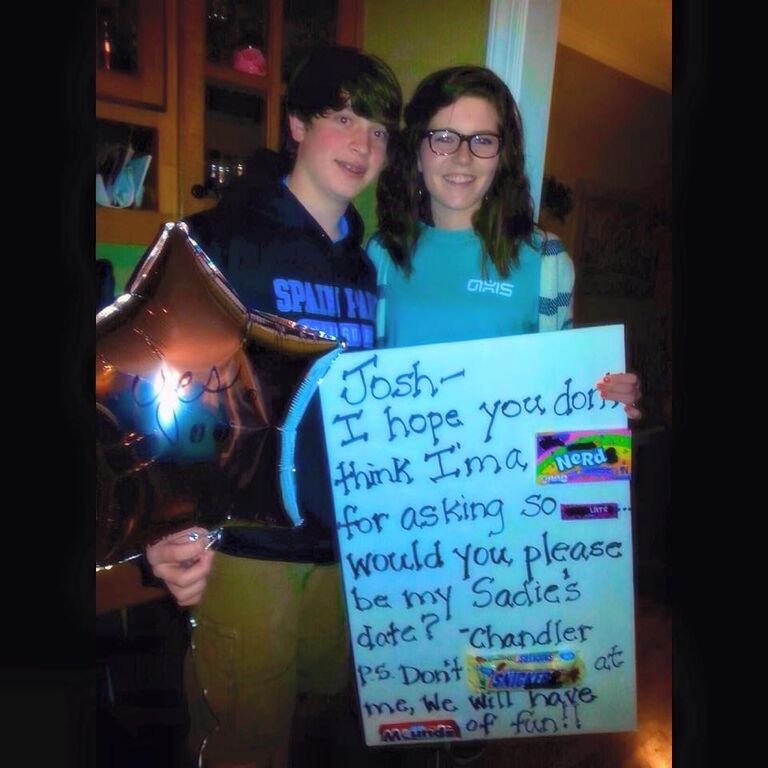 SPAIN PARK
yes
axis
Josh-
I hope you don't
think I'm a NERDS
for asking so LATE...
would you please
be my Sadie's
date? -Chandler
P.S. Don't SNICKERS at
me, we will have
Mounds of fun!!